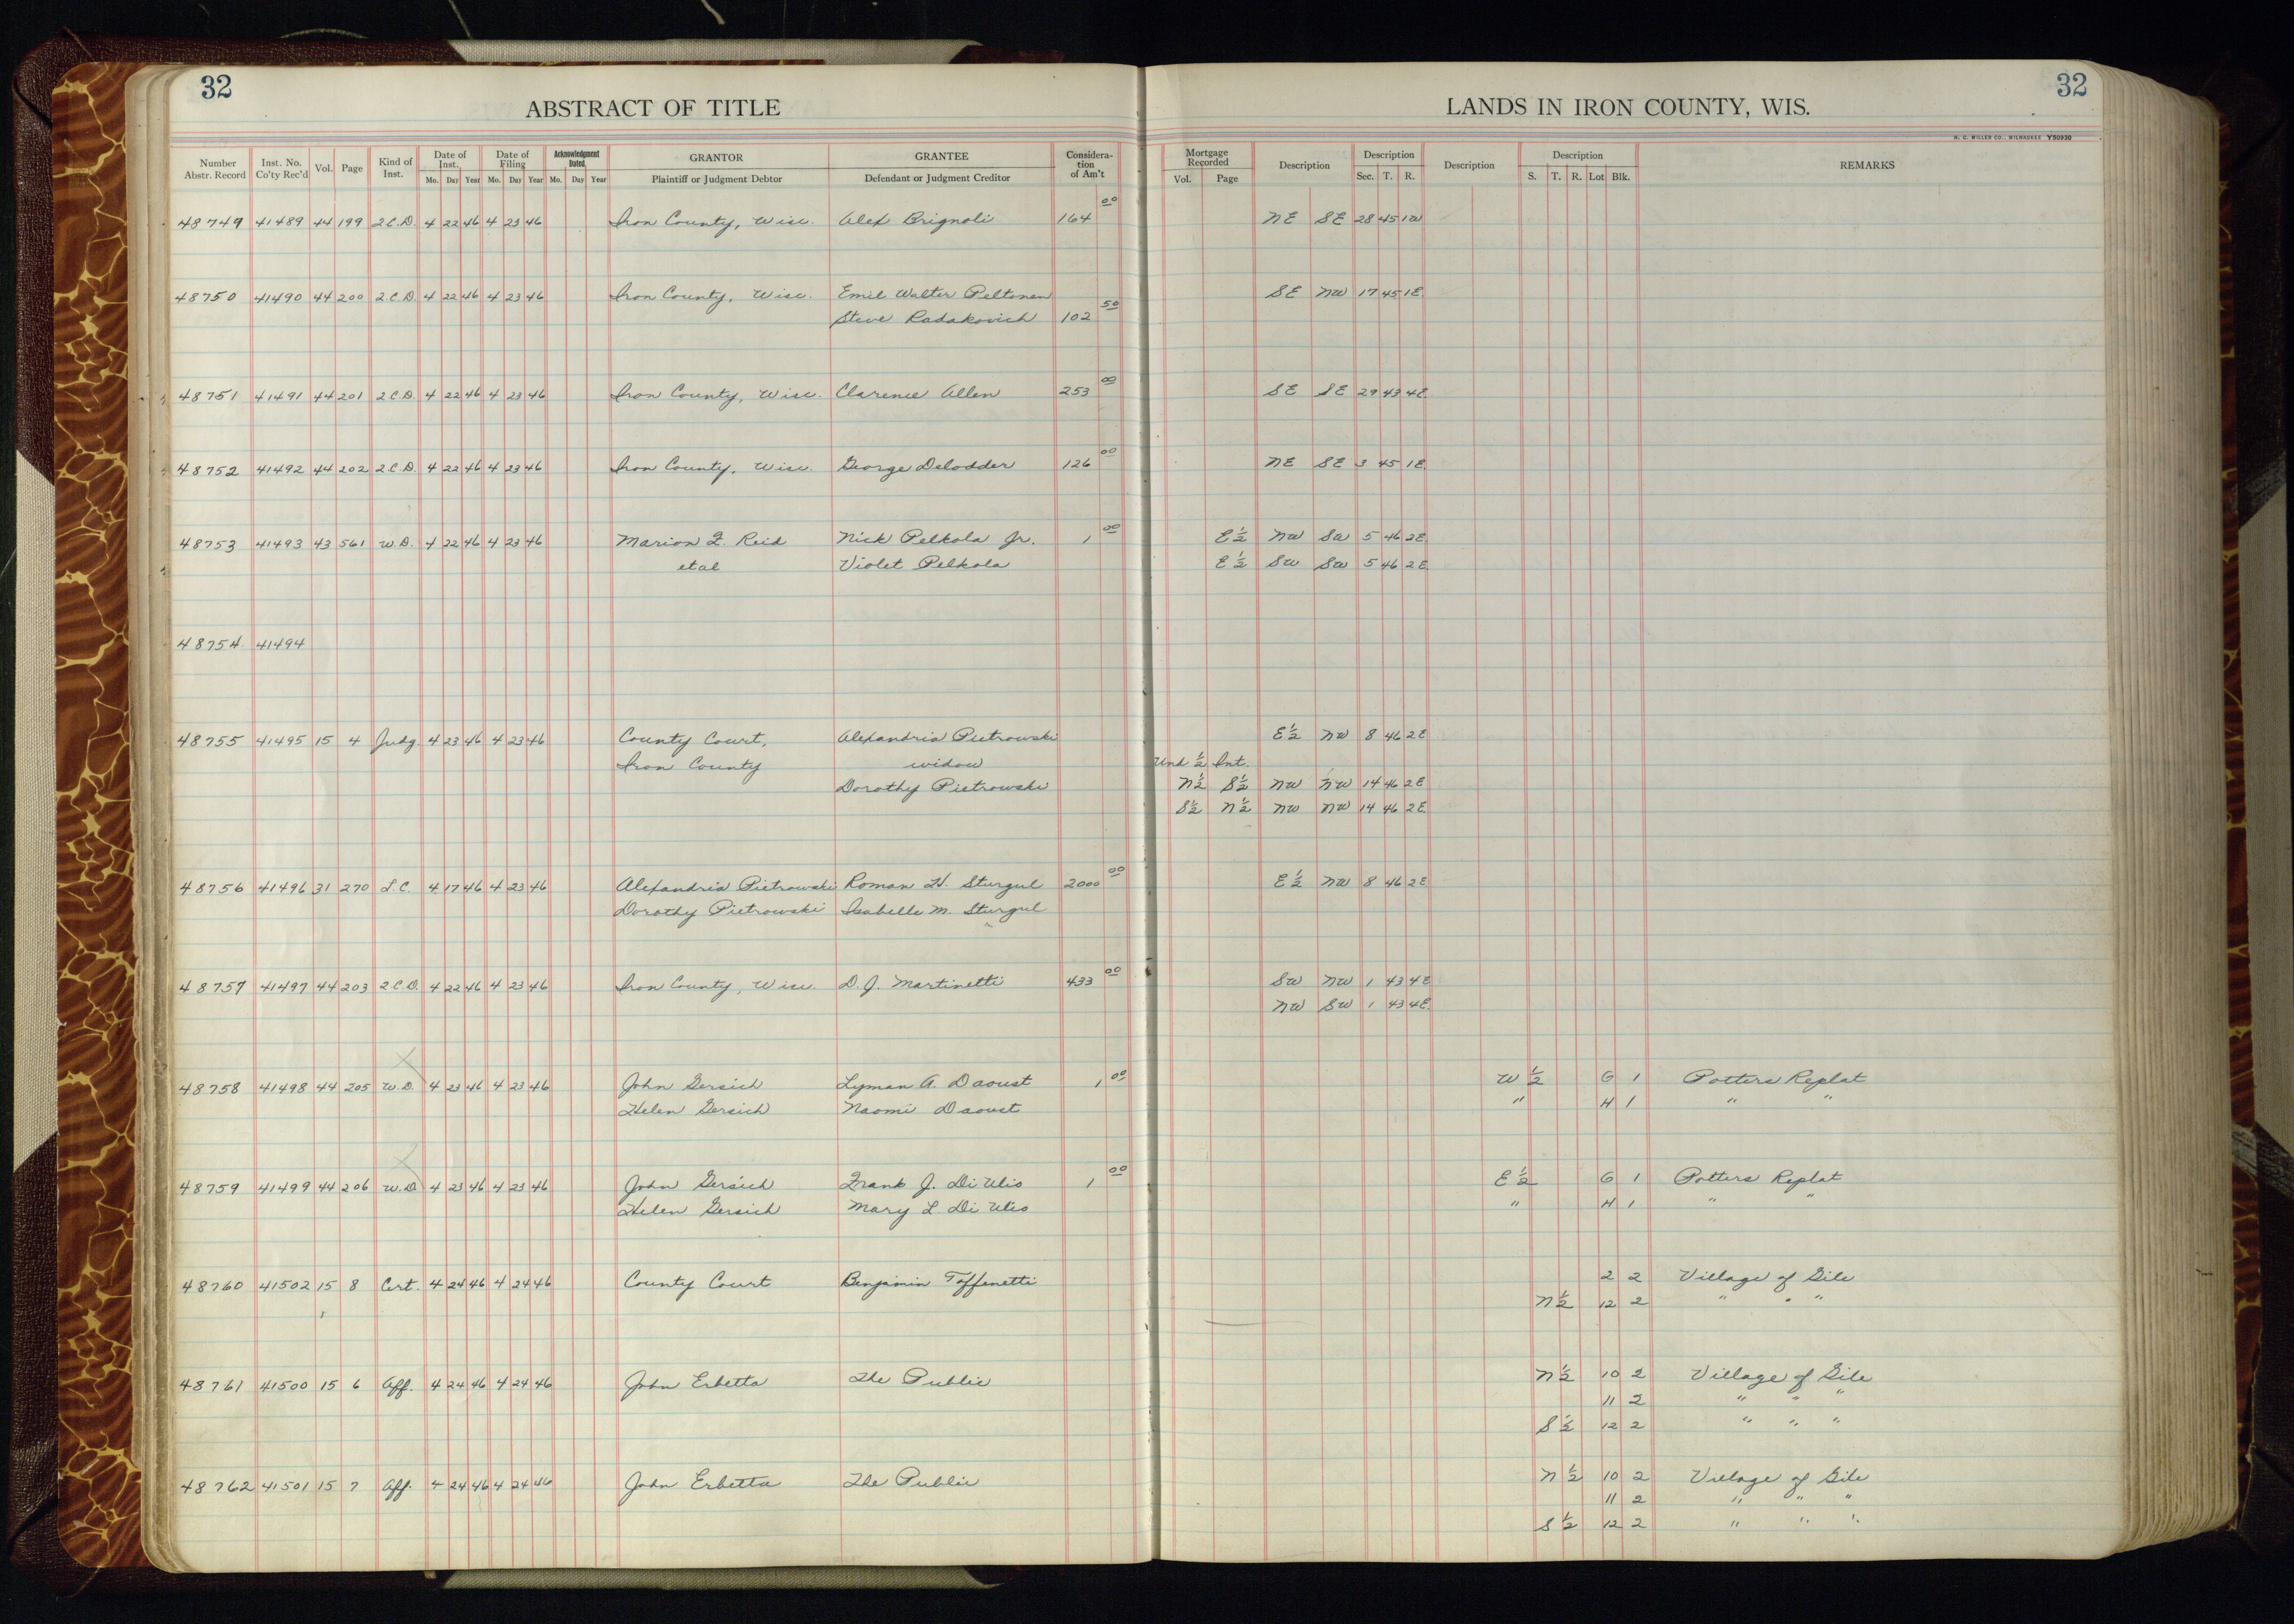 32
32
ABSTRACT OF TITLE
LANDS IN IRON COUNTY, WIS.
H. C. MILLER CO., MILWAUKEE Y50930
Number Abstr. Record Inst. No. Co'ty Rec'd Vol. Page Kind of Inst. Date of Inst. Mo. Day Year Date of Filing Mo. Day Year Acknowledgment Dated Mo. Day Year GRANTOR Plaintiff or Judgment Debtor GRANTEE Defendant or Judgment Creditor Considera-tion of Am't Mortgage Recorded Vol. Page Description Description Sec. T. R. Description Description S. T. R. Lot Blk. REMARKS
48749 41489 44 199 2.C.D. 4 22 46 4 23 46 Iron County, Wisc. Alex Brignoli 164 00 NE SE 28 45 1W
48750 41490 44 200 2.C.D. 4 22 46 4 23 46 Iron County, Wisc. Emil Walter Peltonen SE NW 17 45 1E.
Steve Radakovich 102 50
48751 41491 44 201 2.C.D. 4 22 46 4 23 46 Iron County, Wisc. Clarence Allen 253 00 SE SE 29 43 4E.
48752 41492 44 202 2.C.D. 4 22 46 4 23 46 Iron County, Wisc. George Delodder 126 00 NE SE 3 45 1E.
48753 41493 43 561 W.D. 4 22 46 4 23 46 Marion F. Reid Nick Pelkola Jr. 1 00 E½ NW SW 5 46 2E.
et al Violet Pelkola E½ SW SW 5 46 2E.
48754 41494
48755 41495 15 4 Judg. 4 23 46 4 23 46 County Court, Alexandria Pietrowski E½ NW 8 46 2E
Iron County widow Und ½ Int.
Dorothy Pietrowski N½ S½ NW NW 14 46 2E
S½ N½ NW NW 14 46 2E.
48756 41496 31 270 L.C. 4 17 46 4 23 46 Alexandria Pietrowski Roman H. Sturgul 2000 00 E½ NW 8 46 2E
Dorothy Pietrowski Isabelle M. Sturgul
48757 41497 44 203 2.C.D. 4 22 46 4 23 46 Iron County, Wisc. D. J. Martinetti 433 00 SW NW 1 43 4E
NW SW 1 43 4E.
48758 41498 44 205 W.D. 4 23 46 4 23 46 John Gersich Lyman A. Daoust 1 00 W½ G 1 Potters Replat
Helen Gersich Naomi Daoust " H 1 " "
48759 41499 44 206 W.D 4 23 46 4 23 46 John Gersich Frank J. Di Ulio 1 00 E½ G 1 Potters Replat
Helen Gersich Mary L. Di Ulio " H 1 " "
48760 41502 15 8 Cert. 4 24 46 4 24 46 County Court Benjamin Toffenetti 2 2 Village of Gile
N½ 12 2 " " "
48761 41500 15 6 Aff. 4 24 46 4 24 46 John Erbetta The Public N½ 10 2 Village of Gile
11 2 " " "
S½ 12 2 " " "
48762 41501 15 7 Aff. 4 24 46 4 24 46 John Erbetta The Public N½ 10 2 Village of Gile
11 2 " " "
S½ 12 2 " " "